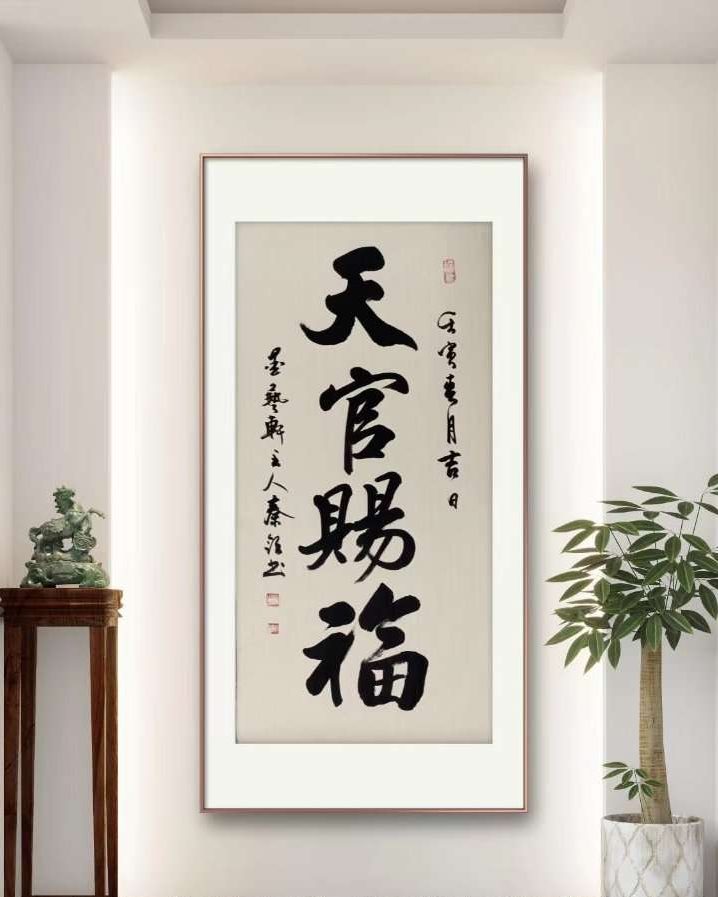 壬寅春月吉日
天官賜福
墨藝軒主人秦书